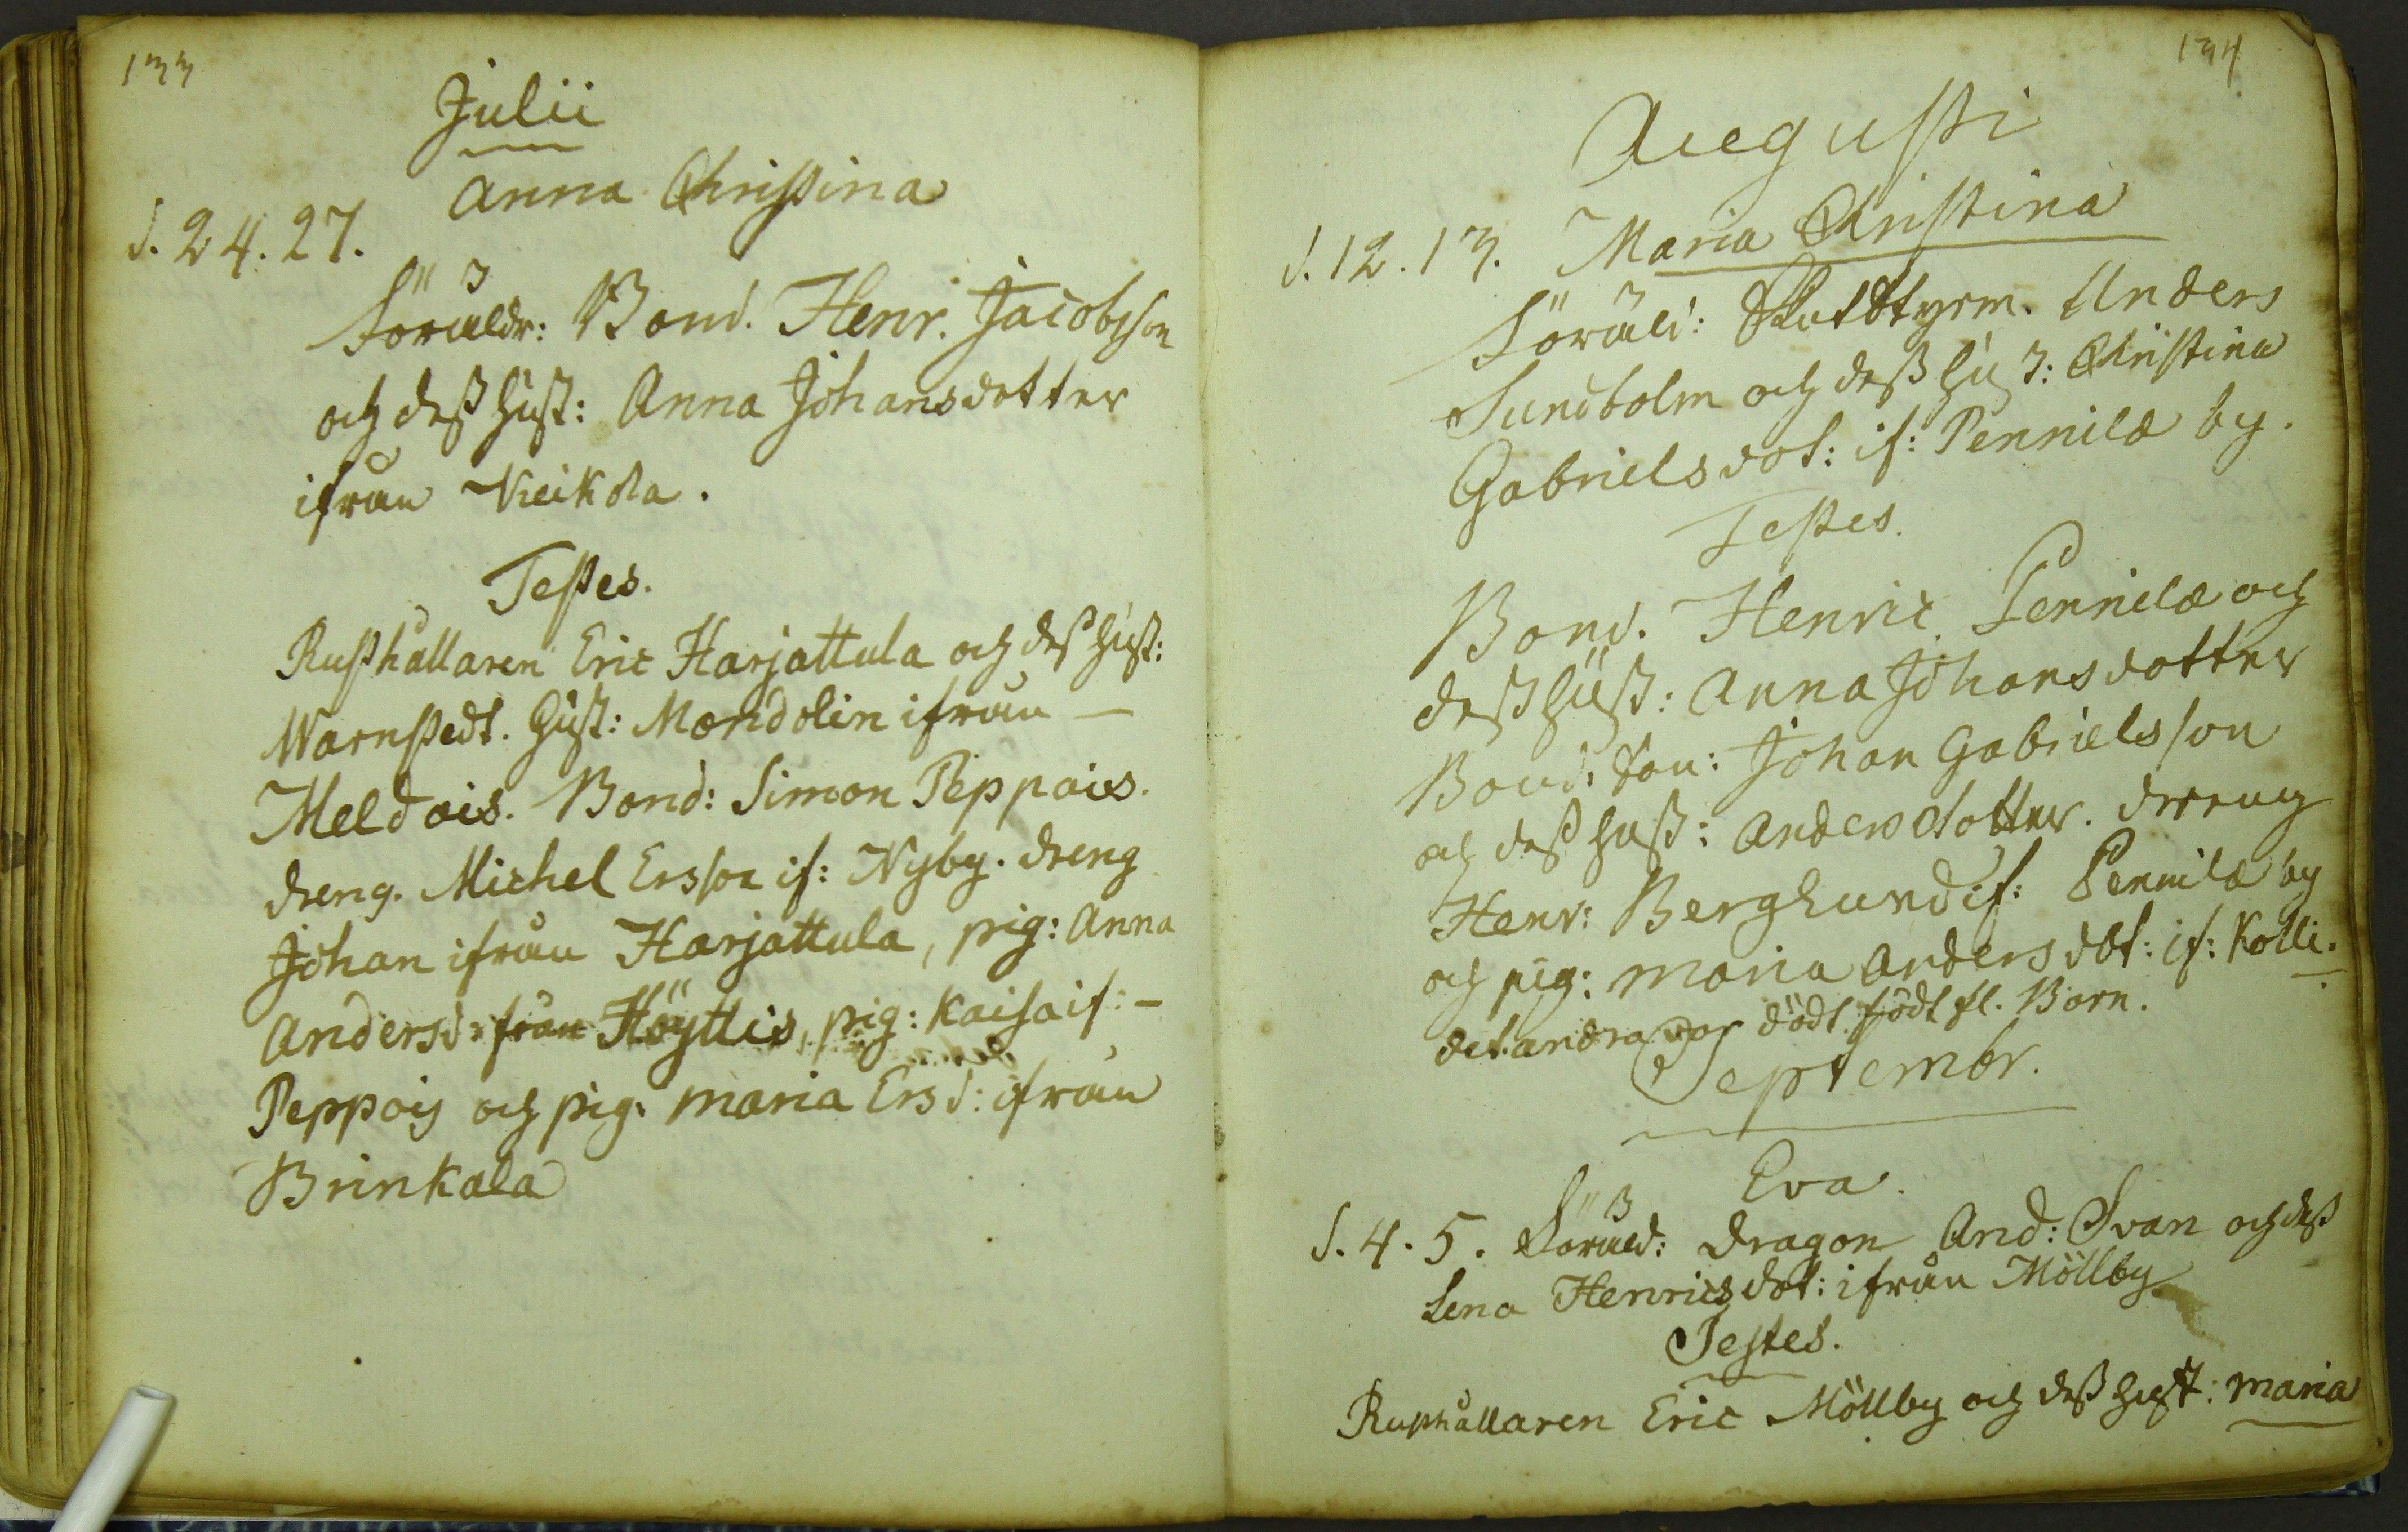 133
Julii
Anna Christina
d. 24. 27.
Föräldr: Bond. Henr. Jacobsson
och dess hust: Anna Johansdotter
ifrån Keikola.
Testes.
Rusthållaren Eric Harjattula och dess hust:
Warnstedt. Hust: Mandolin ifrån —
Meldois. Bond: Simon Peppois.
dreng. Michel Ersson if: Nyby. dreng
Johan ifrån Harjattula, pig: Anna
Andersd: från Höyttis, pig: Kaisa if: –
Peppois och pig: Maria Ersd: ifrån
Brinkala
134
Augusti
d. 12. 13. Maria Christina
Föräld: Skutstyrm. Anders
Sundholm och dess hust: Christina
Gabrielsdot: if: Pennilä by.
Testes.
Bond. Henric Pennilä och
dess hust: Anna Johansdotter
Bond. Son: Johan Gabrielsson
och dess hust: Andersdotter. dreng
Henr: Berglund if: Pennilä by
och pig: Maria Andersdot: if: Kolli.
det andra var dödt födt fl. Barn.
Septembr.
Eva.
d. 4. 5. Föräld: Dragon And: Svan och dess
Lena Henricsdot: ifrån Möllby
Testes.
Rusthållaren Eric Möllby och dess hust: Maria